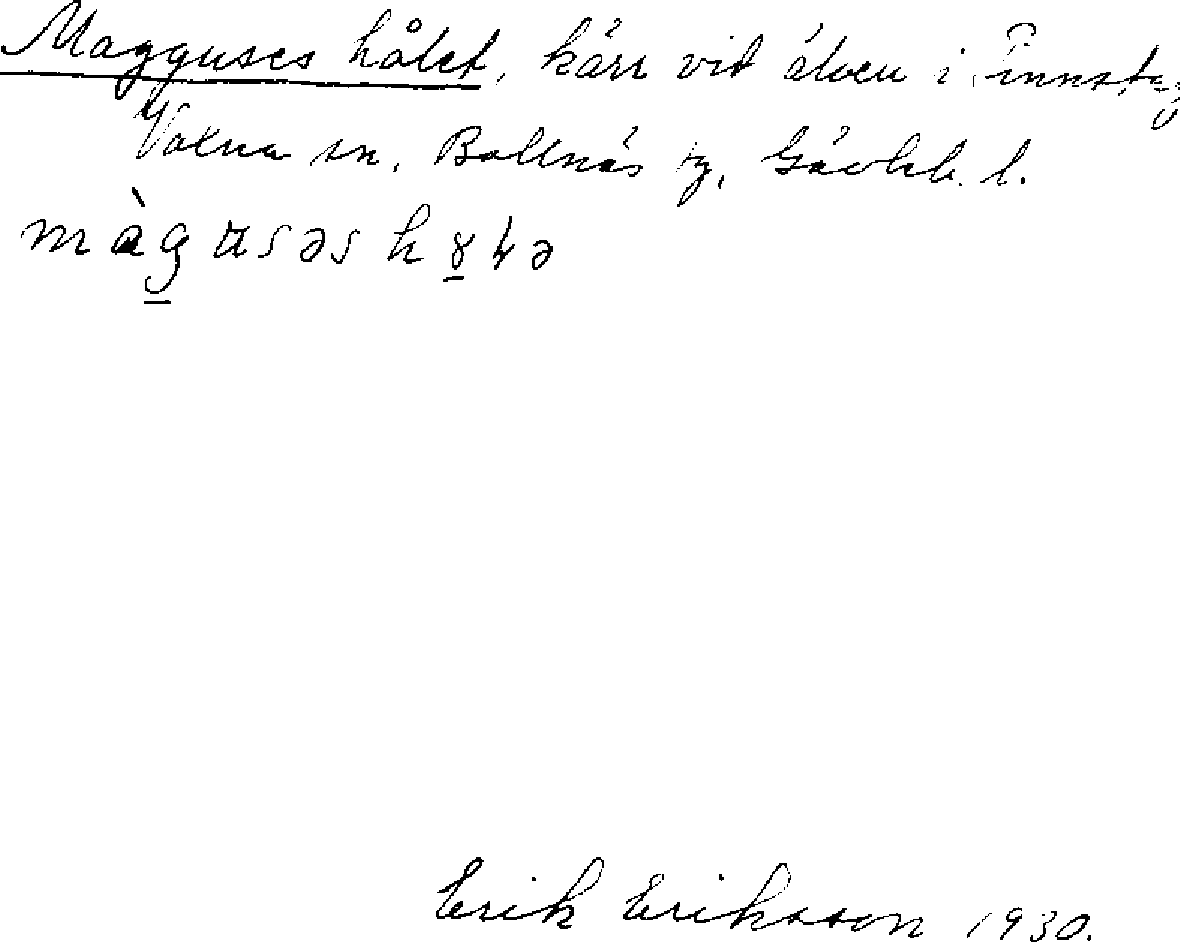 Magguses hålet, kärr vid älven i Finnsteg
Voxna sn. Bollnäs tg, Gävleb. l.
màg̲ʉsəs h ɤ̲ɬə
Erik Eriksson 1930.